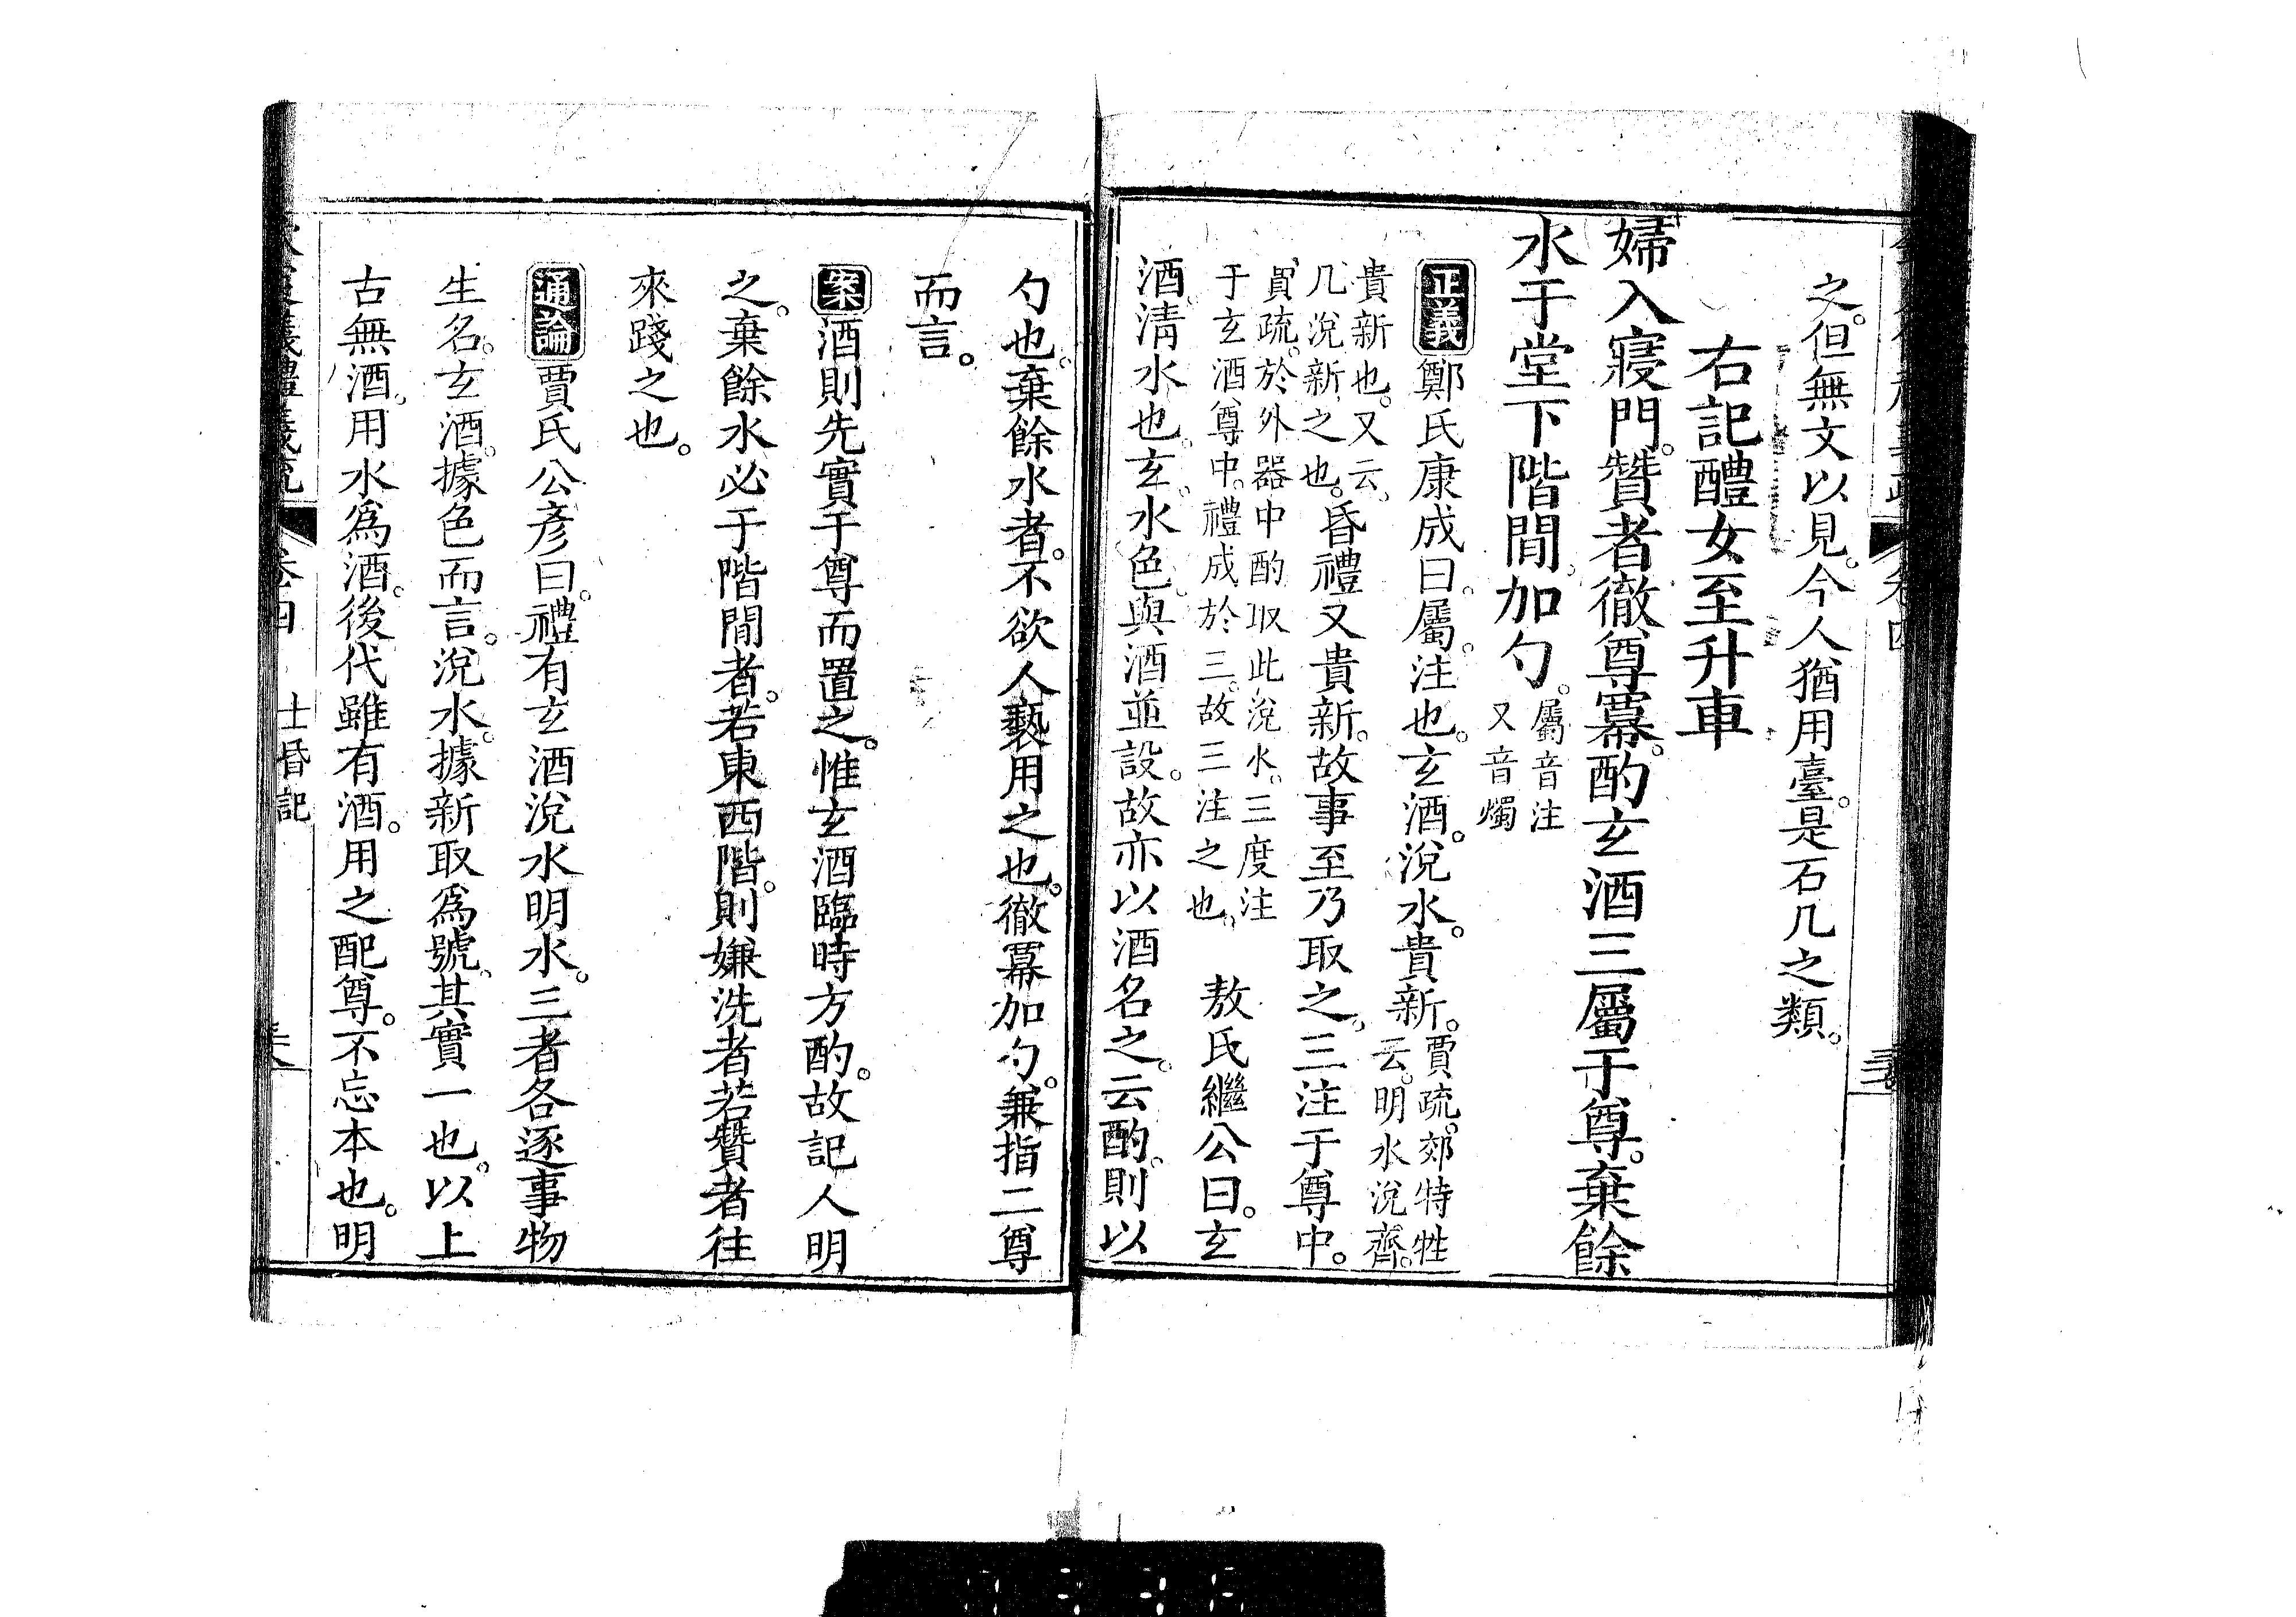 之。但無文以見。今人猶用臺。是石几之類。
右記醴女至升車
婦入寢門。贊者徹尊冪。酌玄酒三屬于尊。棄餘
水于堂下階間。加勺。屬音注又音燭
正義鄭氏康成曰。屬。注也。玄酒。涗水。貴新。賈疏。郊特牲云。明水涗齊。
貴新也。又云。凡涗新之也。昏禮又貴新。故事至乃取之。三注于尊中。
賈疏。於外器中酌取此涗水。三度注于玄酒尊中。禮成於三。故三注之也。敖氏繼公曰。玄
酒。清水也。玄。水色。與酒並設。故亦以酒名之。云酌。則以
勺也。棄餘水者。不欲人褻用之也。徹冪加勺。兼指二尊
而言。
案酒則先實于尊而置之。惟玄酒臨時方酌。故記人明
之。棄餘水必于階間者。若東西階。則嫌洗者若贊者往
來踐之也。
通論賈氏公彥曰。禮有玄酒涗水明水。三者各逐事物
生名。玄酒。據色而言。涗水。據新取為號。其實一也。以上
古無酒。用水為酒。後代雖有酒。用之配尊。不忘本也。明
儀禮義疏
卷四
士昏記